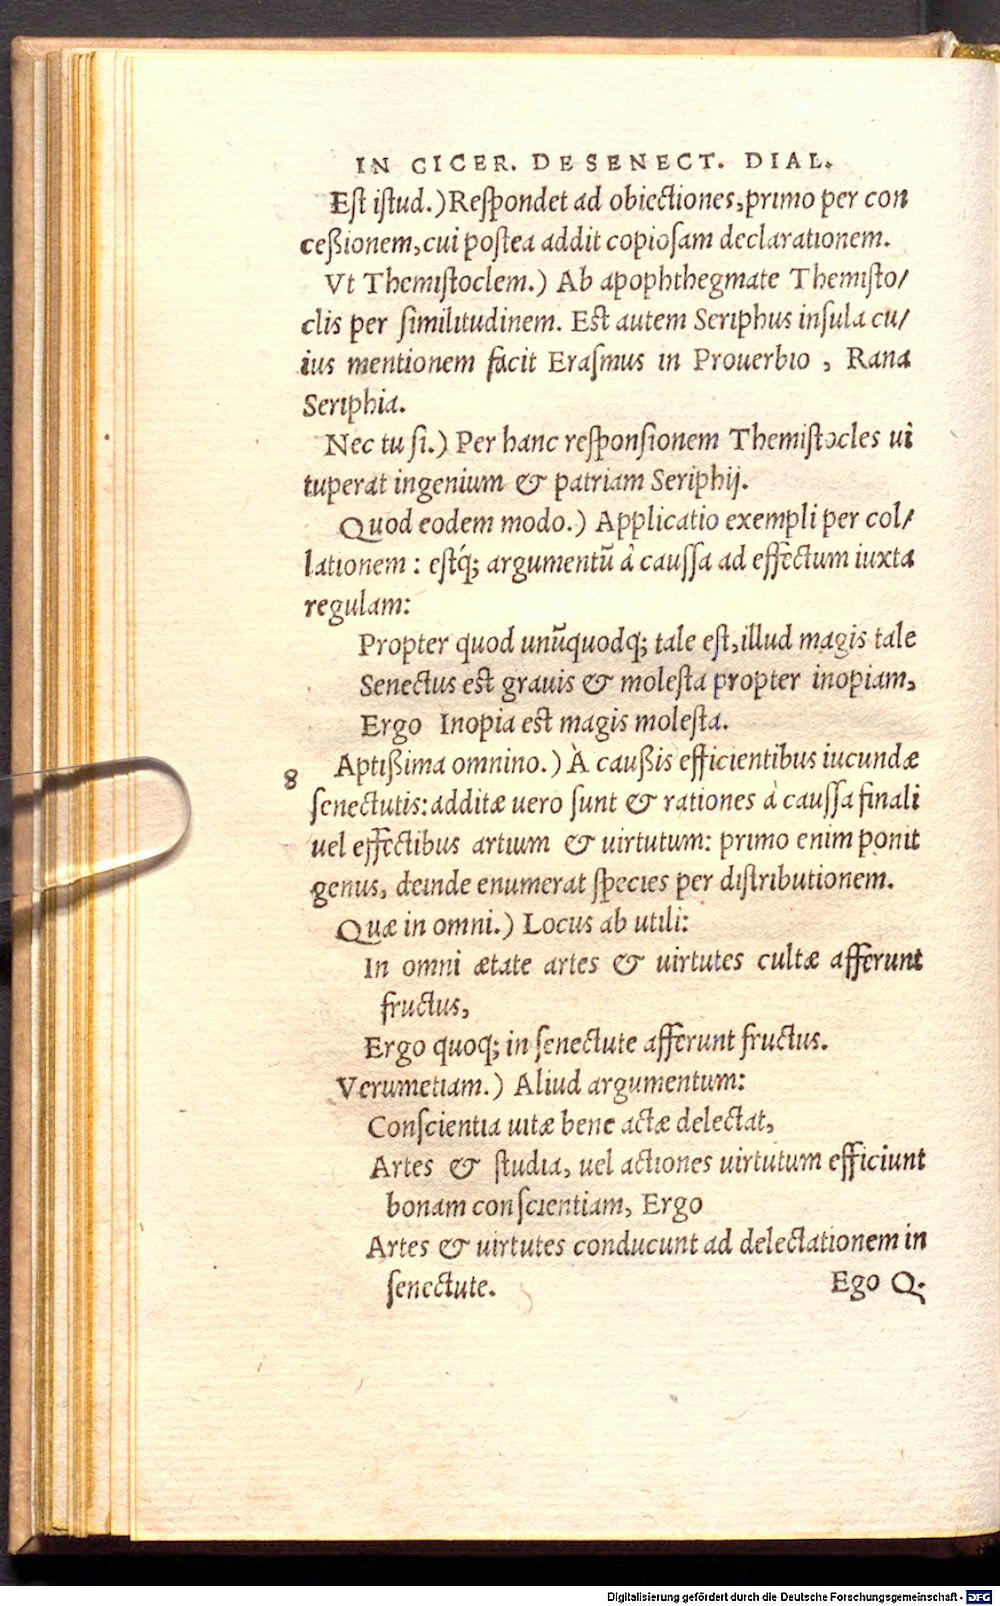 IN CICER. DE SENECT. DIAL.
Est istud.) Respondet ad obiectiones, primo per con
ceßionem, cui postea addit copiosam declarationem.
Vt Themistoclem.) Ab apophthegmate Themisto/
clis per similitudinem. Est autem Seriphus insula cu/
ius mentionem facit Erasmus in Prouerbio , Rana
Seriphia.
Nec tu si.) Per hanc responsionem Themistocles ui
tuperat ingenium & patriam Seriphij.
Quod eodem modo.) Applicatio exempli per col/
lationem : estq́; argumentũ à caussa ad effectum iuxta
regulam:
Propter quod unũquodq; tale est, illud magis tale
Senectus est grauis & molesta propter inopiam,
Ergo Inopia est magis molesta.
8 Aptißima omnino.) À caußis efficientibus iucundæ
senectutis: additæ uero sunt & rationes à caussa finali
uel effectibus artium & uirtutum: primo enim ponit
genus, deinde enumerat species per distributionem.
Quæ in omni.) Locus ab utili:
In omni ætate artes & uirtutes cultæ afferunt
fructus,
Ergo quoq; in senectute afferunt fructus.
Verumetiam.) Aliud argumentum:
Conscientia uitæ bene actæ delectat,
Artes & studia, uel actiones uirtutum efficiunt
bonam conscientiam, Ergo
Artes & uirtutes conducunt ad delectationem in
senectute. Ego Q.
Digitalisierung gefördert durch die Deutsche Forschungsgemeinschaft - DFG